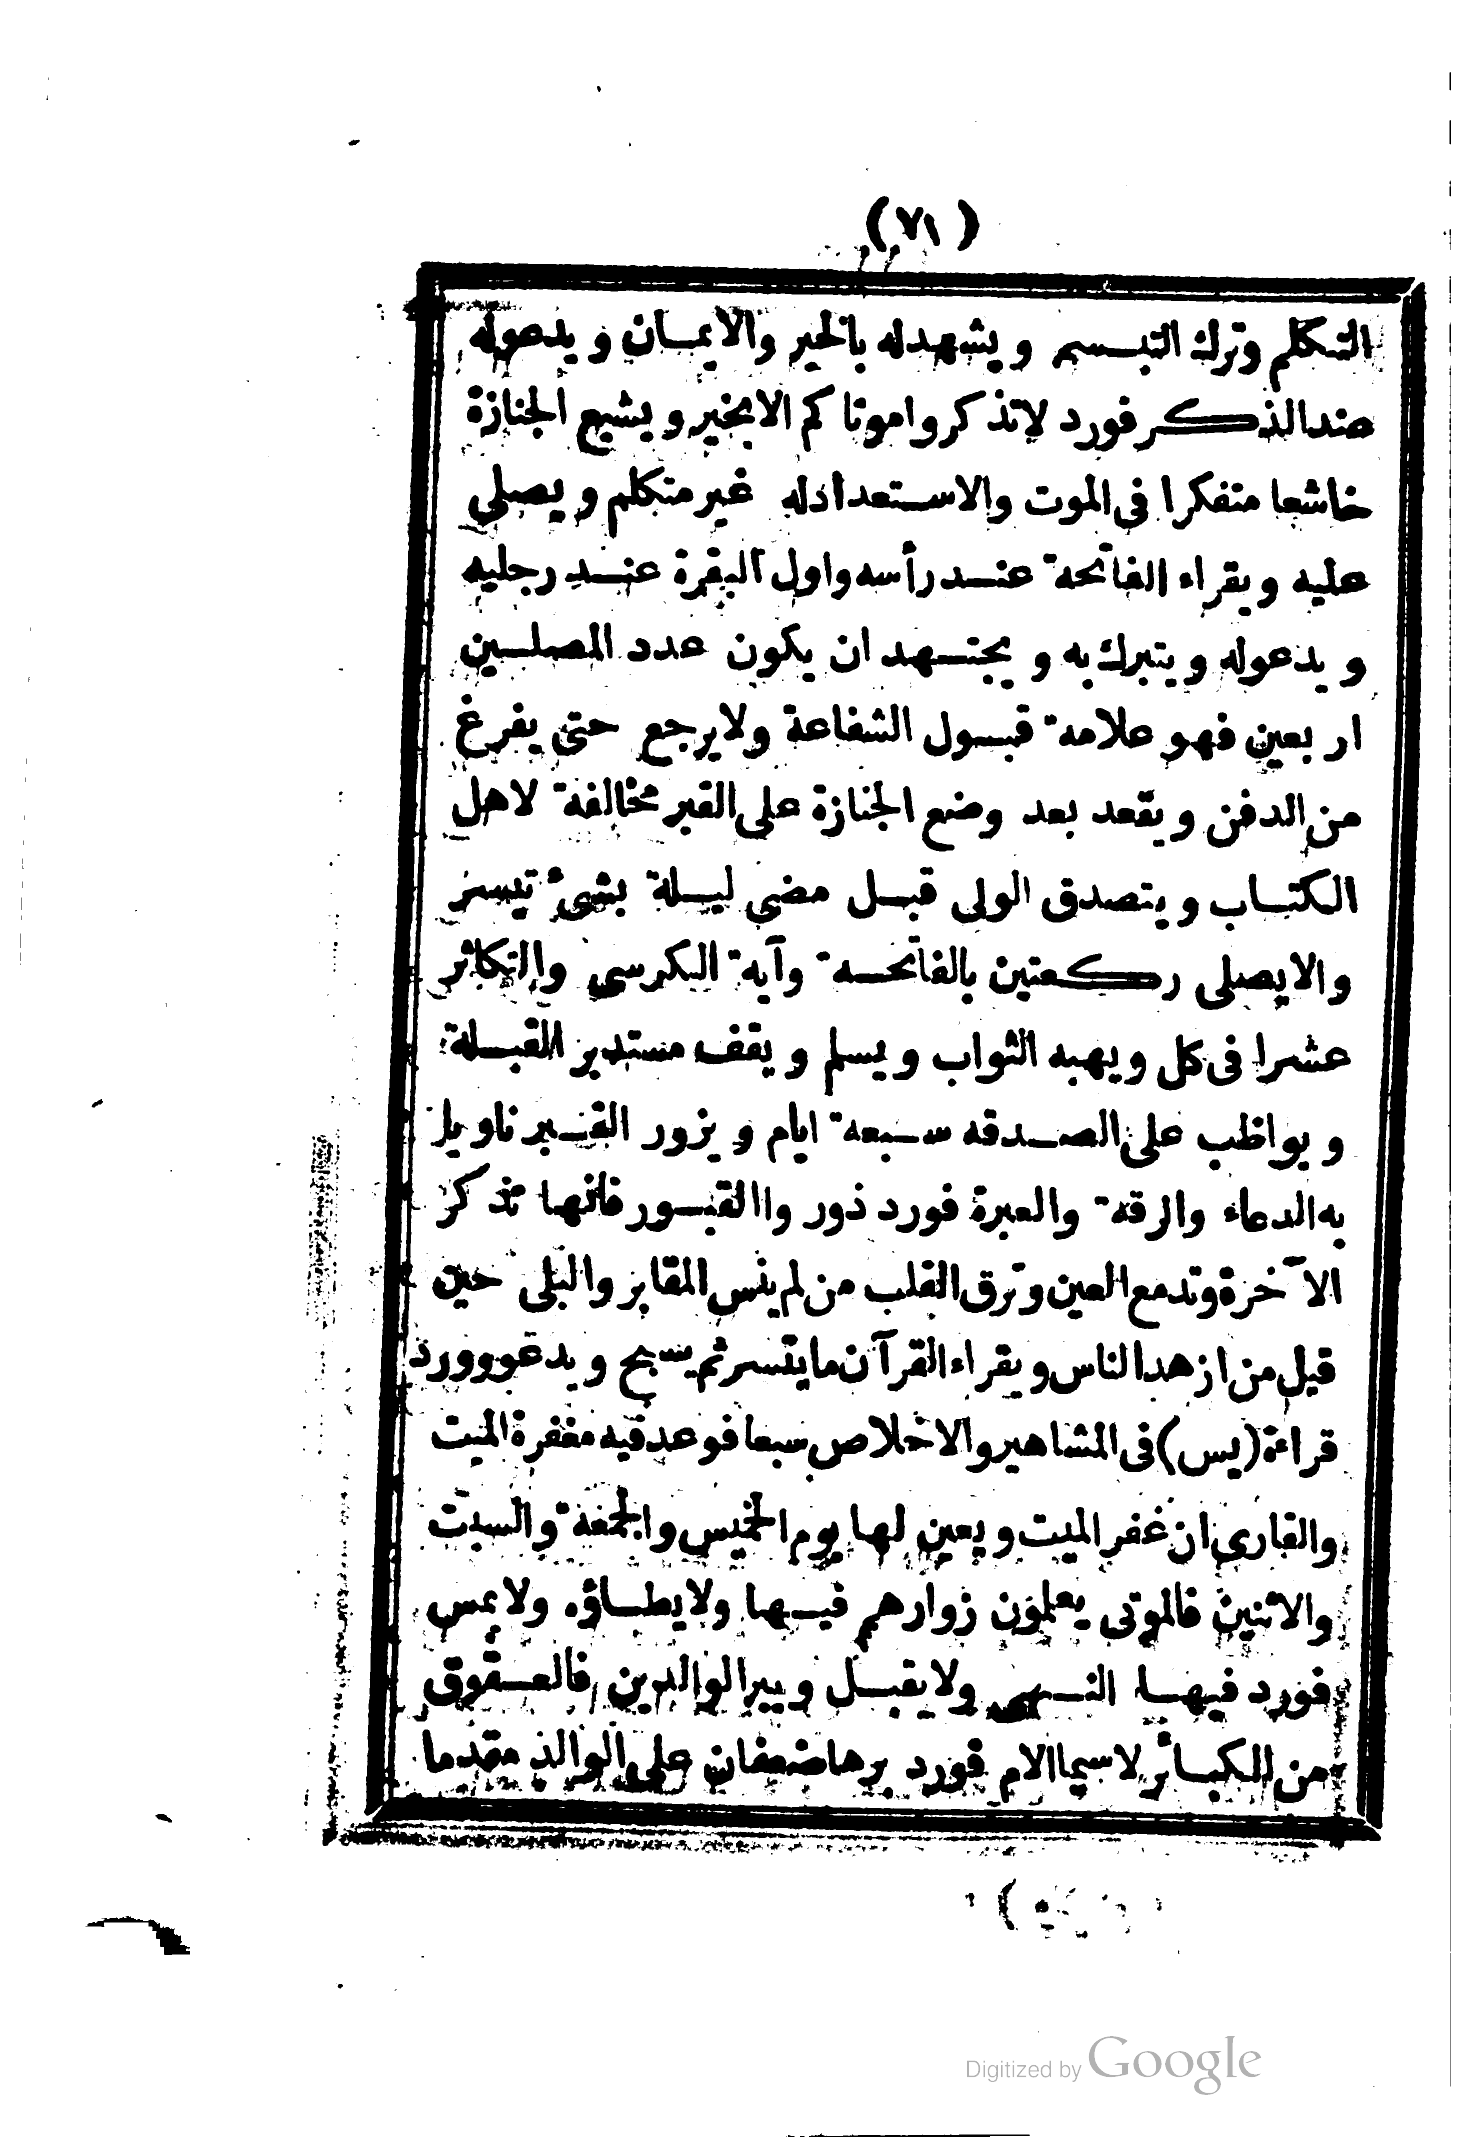 (٧١)
التكلم وترك التبسم ويشهدله بالخير والايمان ويدعوله
عندالذكر فورد لاتذكروا موتاكم الابخير ويشيع الجنازة
خاشعا متفكرا فى الموت والاستعدادله غير متكلم ويصلى
عليه ويقراء الفاتحة عند رأسه واول البقرة عند رجليه
ويدعوله ويتبرك به ويجتهد ان يكون عدد المصلين
اربعين فهو علامة قبول الشفاعة ولايرجع حتى يفرغ
من الدفن ويقعد بعد وضع الجنازة على القبر مخالفة لاهل
الكتاب ويتصدق الولى قبل مضى ليلة بشئ تيسر
والايصلى ركعتين بالفاتحة وآية الكرسى والتكاثر
عشرا فى كل ويهبه الثواب ويسلم ويقف مستدبر القبلة
ويواظب على الصدقه سبعة ايام ويزور القبر ناويا
به الدعاء والرقة والعبرة فورد ذوروا القبور فانها تذكر
الآخرة وتدمع العين وترق القلب من لم ينس المقابر والبلى حين
قيل من ازهدالناس ويقراء القرآن مايتسر ثم يسبح ويدعو وورد
قراءة (يس) فى المشاهير والاخلاص سبعا فوعد فيه مغفرة الميت
والقارى ان غفر الميت ويعين لها يوم الخميس والجمعة والسبت
والاثنين فالموتى يعلمون زوارهم فيها ولايطاؤه ولايمس
فورد فيها النهى ولايقبل ويبر الوالدين فالعقوق
من الكبائر لاسيماالام فورد برها ضعفان على الوالد مقدما
Digitized by Google